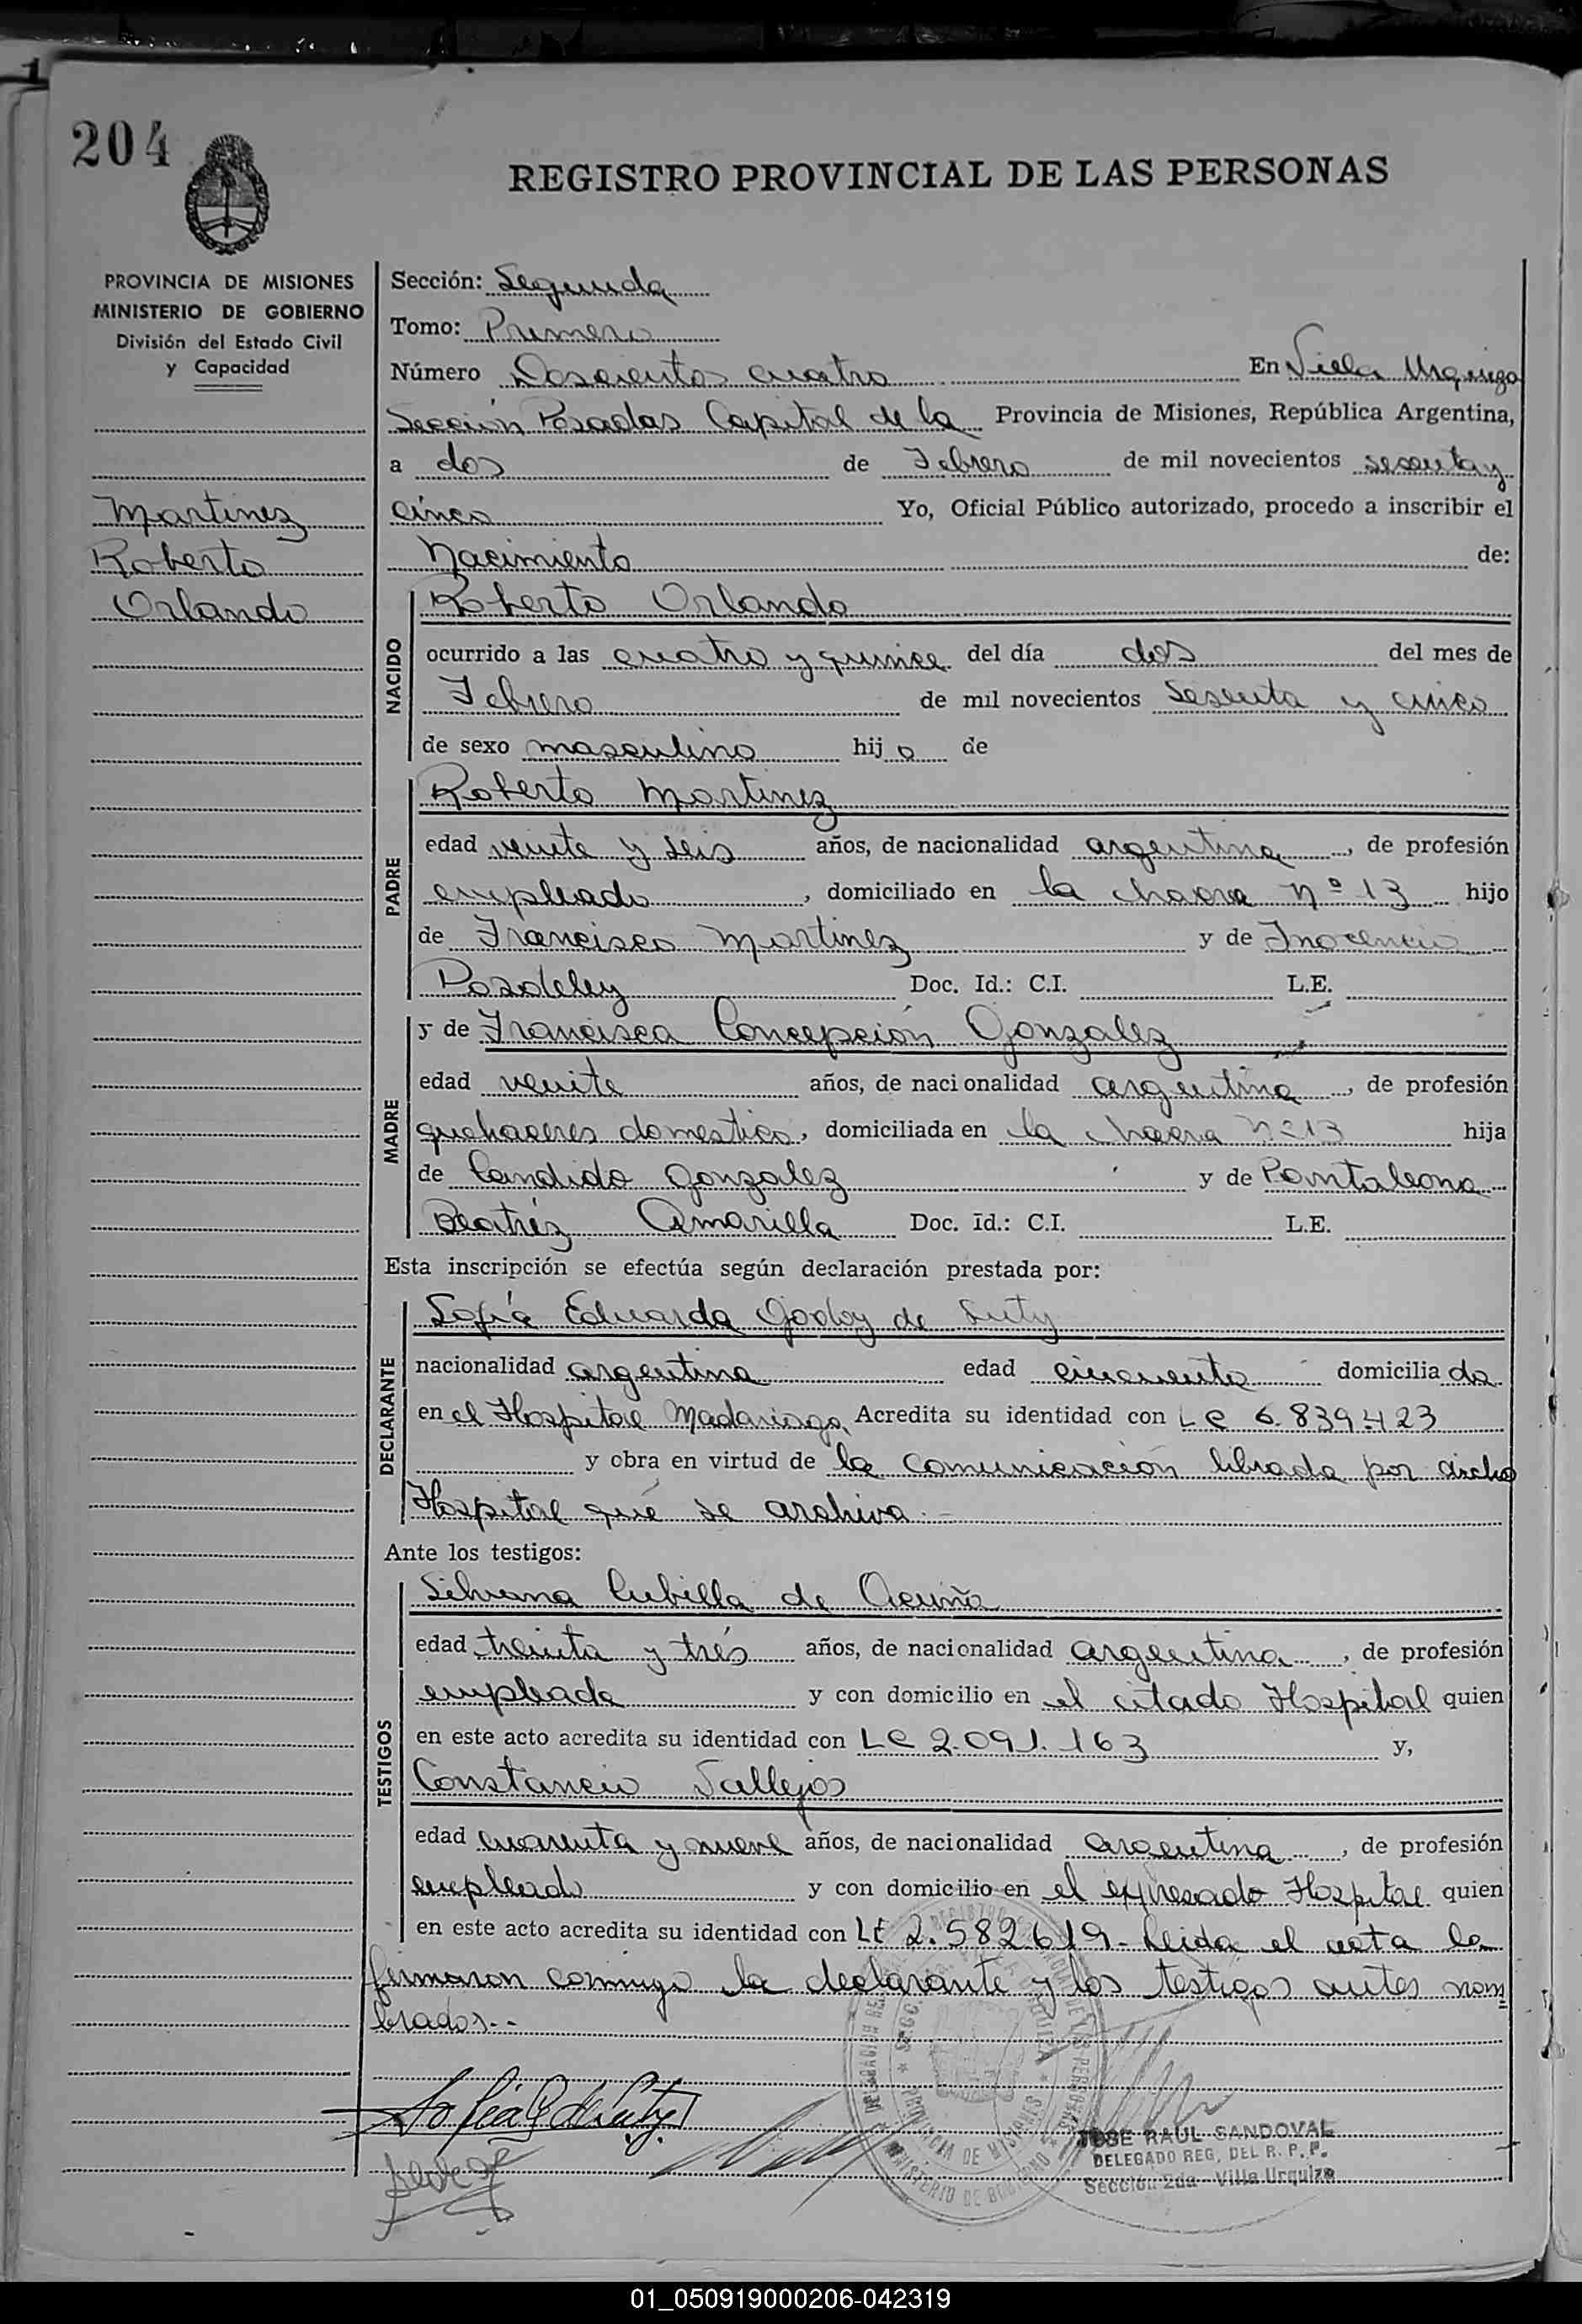 204
REGISTRO PROVINCIAL DE LAS PERSONAS
PROVINCIA DE MISIONES
MINISTERIO DE GOBIERNO
División del Estado Civil
y Capacidad
Martinez
Roberto
Orlando
Sección: Segunda
Tomo: Primero
Número Doscientos cuatro En Villa Urquiza
Sección Posadas Capital de la Provincia de Misiones, República Argentina,
a dos de Febrero de mil novecientos sesenta y
cinco Yo, Oficial Público autorizado, procedo a inscribir el
Nacimiento de:
NACIDO
Roberto Orlando
ocurrido a las cuatro y quince del día dos del mes de
Febrero de mil novecientos sesenta y cinco
de sexo masculino hijo de
PADRE
Roberto Martinez
edad veinte y seis años, de nacionalidad argentina, de profesión
empleado, domiciliado en la chacra nº 13 hijo
de Francisco Martinez y de Inocencia
Doc. Id.: C.I. L.E.
MADRE
y de Francisca Concepción Gonzalez
edad veinte años, de nacionalidad argentina, de profesión
quehaceres domestico, domiciliada en la chacra nº 13 hija
de Candido Gonzalez y de Pantaleona
Beatréz Amarilla Doc. Id.: C.I. L.E.
Esta inscripción se efectúa según declaración prestada por:
DECLARANTE
Sofía Eduarda Godoy de Suty
nacionalidad argentina edad cincuenta domiciliada
en el Hospital Madariaga, Acredita su identidad con LC 6.839.423
y obra en virtud de la comunicación librada por dicho
Hospital qué se archiva.-
Ante los testigos:
TESTIGOS
Silvana Cubilla de Acuña
edad treinta y trés años, de nacionalidad argentina, de profesión
empleada y con domicilio en el citado Hospital quien
en este acto acredita su identidad con LC 2.091.163 y,
Constancio Vallejos
edad cuarenta y nueve años, de nacionalidad argentina, de profesión
empleado y con domicilio en el expresado Hospital quien
en este acto acredita su identidad con LE 2.582.619.- Leida el acta la
firmaron conmigo la declarante y los testigos antes nom
brados.--
JOSE RAUL SANDOVAL
DELEGADO REG. DEL R. P. P.
Sección 2da - Villa Urquiza
01_050919000206-042319